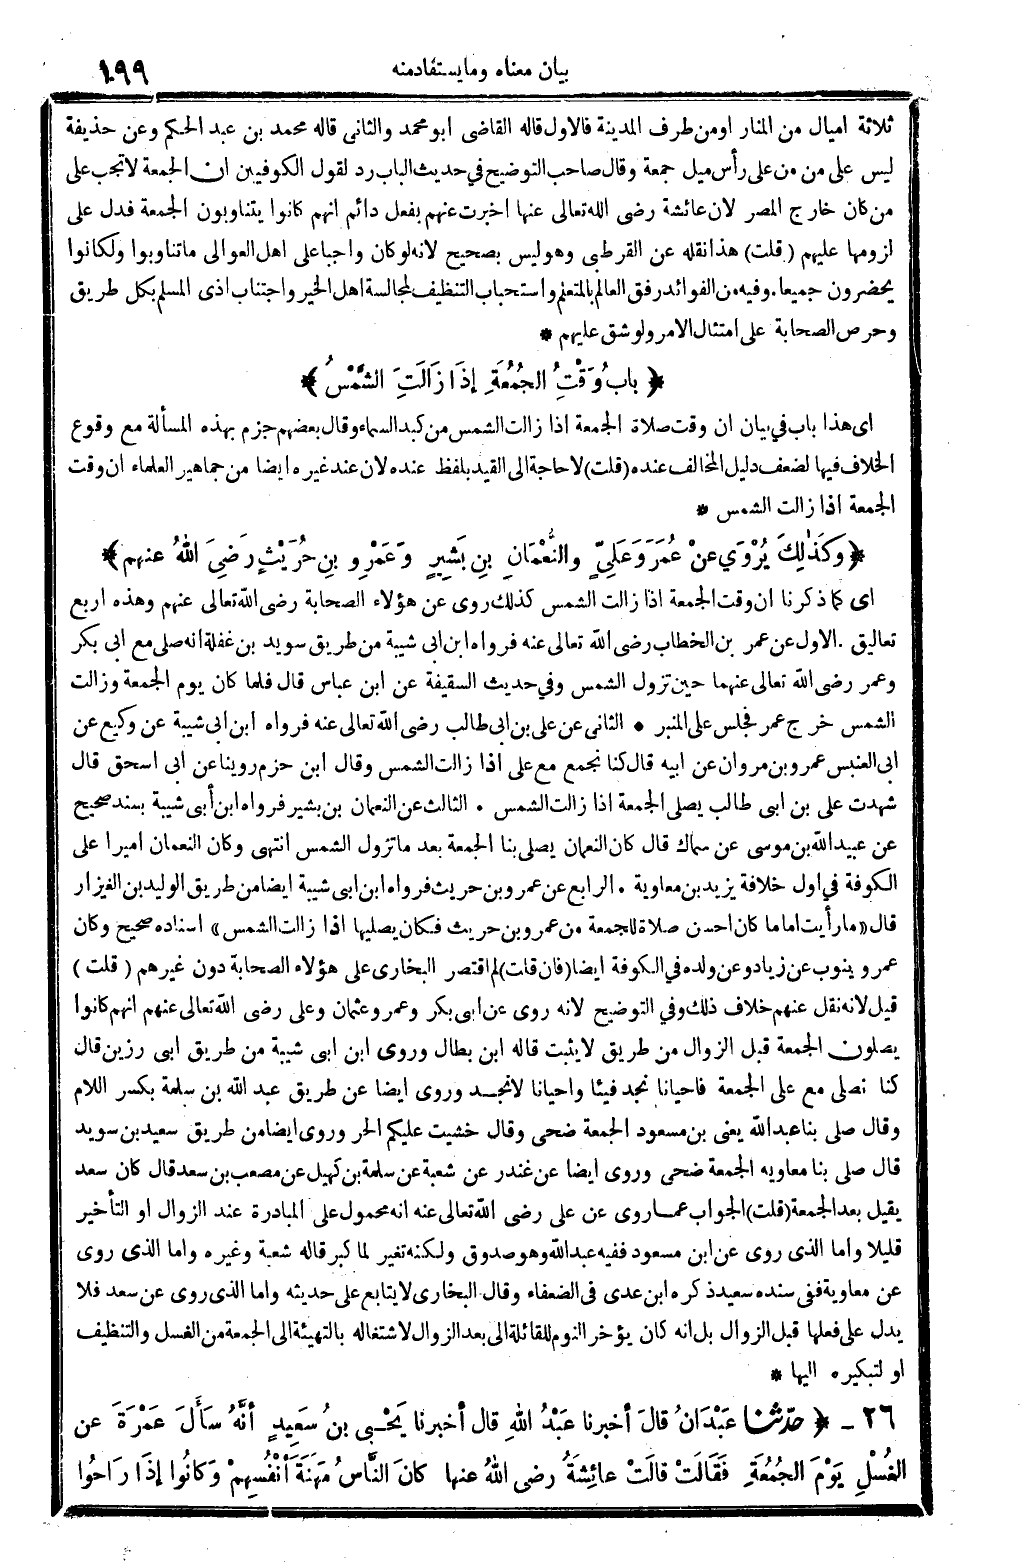 بيان معناه ومايستفادمنه
١٩٩
ثلاثة اميال من المنار اومن طرف المدينة فالاول قاله القاضى ابومحمد والثانى قاله محمد بن عبد الحكم وعن حذيفة
ليس على من من على رأس ميل جمعة وقال صاحب التوضيح في حديث الباب رد لقول الكوفيين ان الجمعة لاتجب على
من كان خارج المصر لان عائشة رضى الله تعالى عنها اخبرت عنهم بفعل دائم انهم كانوا يتناوبون الجمعة فدل على
لزومها عليهم (قلت) هذا نقله عن القرطبى وهو ليس بصحيح لانه لو كان واجبا على اهل العوالى ماتناوبوا ولكانوا
يحضرون جميعا. وفيه من الفوائد رفق العالم بالمتعلم واستحباب التنظيف لمجالسة اهل الخير واجتناب اذى المسلم بكل طريق
وحرص الصحابة على امتثال الامر ولو شق عليهم *
﴿ بابُ وَقْتِ الجُمُعَةِ إذَا زَالَتِ الشَّمْسُ ﴾
اى هذا باب في بيان ان وقت صلاة الجمعة اذا زالت الشمس من كبد السماء وقال بعضهم جزم بهذه المسألة مع وقوع
الخلاف فيها لضعف دليل المخالف عنده (قلت) لاحاجة الى القيد بلفظ عنده لان عند غيره ايضا من جماهير العلماء ان وقت
الجمعة اذا زالت الشمس *
﴿ وكَذَلِكَ يُرْوَي عنْ عُمَرَ وَعَلِيٍّ والنُّعْمَانِ بنِ بَشِيرٍ وَعَمْرِو بنِ حُرَيْثٍ رَضِيَ اللهُ عنهم ﴾
اى كما ذكرنا ان وقت الجمعة اذا زالت الشمس كذلك روى عن هؤلاء الصحابة رضى الله تعالى عنهم وهذه اربع
تعاليق . الاول عن عمر بن الخطاب رضى الله تعالى عنه فرواه ابن ابى شيبة من طريق سويد بن غفلة انه صلى مع ابى بكر
وعمر رضى الله تعالى عنهما حين تزول الشمس وفي حديث السقيفة عن ابن عباس قال فلما كان يوم الجمعة وزالت
الشمس خرج عمر فجلس على المنبر * الثانى عن على بن ابى طالب رضى الله تعالى عنه فرواه ابن ابى شيبة عن وكيع عن
ابى العنبس عمرو بن مروان عن ابيه قال كنا نجمع مع على اذا زالت الشمس وقال ابن حزم روينا عن ابى اسحق قال
شهدت على بن ابى طالب يصلى الجمعة اذا زالت الشمس . الثالث عن النعمان بن بشير فرواه ابن أبى شيبة بسند صحيح
عن عبيدالله بن موسى عن سماك قال كان النعمان يصلى بنا الجمعة بعد ماتزول الشمس انتهى وكان النعمان اميرا على
الكوفة في اول خلافة يزيد بن معاوية . الرابع عن عمرو بن حريث فرواه ابن ابى شيبة ايضا من طريق الوليد بن العيزار
قال «مارأيت اماما كان احسن صلاة للجمعة من عمرو بن حريث فكان يصليها اذا زالت الشمس» اسناده صحيح وكان
عمرو ينوب عن زياد وعن ولده في الكوفة ايضا (فان قلت) لم اقتصر البخارى على هؤلاء الصحابة دون غيرهم (قلت)
قيل لانه نقل عنهم خلاف ذلك وفي التوضيح لانه روى عن ابى بكر وعمر وعثمان وعلى رضى الله تعالى عنهم انهم كانوا
يصلون الجمعة قبل الزوال من طريق لايثبت قاله ابن بطال وروى ابن ابى شيبة من طريق ابى رزين قال
كنا نصلى مع على الجمعة فاحيانا نجد فيئا واحيانا لانجد وروى ايضا عن طريق عبد الله بن سلمة بكسر اللام
وقال صلى بنا عبدالله يعنى بن مسعود الجمعة ضحى وقال خشيت عليكم الحر وروى ايضا من طريق سعيد بن سويد
قال صلى بنا معاويه الجمعة ضحى وروى ايضا عن غندر عن شعبة عن سلمة بن كهيل عن مصعب بن سعد قال كان سعد
يقيل بعد الجمعة (قلت) الجواب عما روى عن على رضى الله تعالى عنه انه محمول على المبادرة عند الزوال او التأخير
قليلا واما الذى روى عن ابن مسعود ففيه عبدالله وهو صدوق ولكنه تغير لما كبر قاله شعبة وغيره واما الذى روى
عن معاوية ففى سنده سعيد ذكره ابن عدى فى الضعفاء وقال البخارى لايتابع على حديثه واما الذى روى عن سعد فلا
يدل على فعلها قبل الزوال بل انه كان يؤخر النوم للقائلة الى بعد الزوال لاشتغاله بالتهيئة الى الجمعة من الغسل والتنظيف
او لتبكيره اليها *
٢٦ - ﴿ حدّثنا عَبْدَانُ قالَ أخبرنا عَبْدُ اللهِ قال أخبرنا يَحْيى بنُ سَعِيدٍ أنَّهُ سَأَلَ عَمْرَةَ عن
الغُسْلِ يَوْمَ الجُمُعَةِ فَقَالَتْ قالَتْ عائِشَةُ رضى اللهُ عنها كانَ النَّاسُ مَهَنَةَ أنْفُسِهِمْ وَكانُوا إذَا رَاحُوا